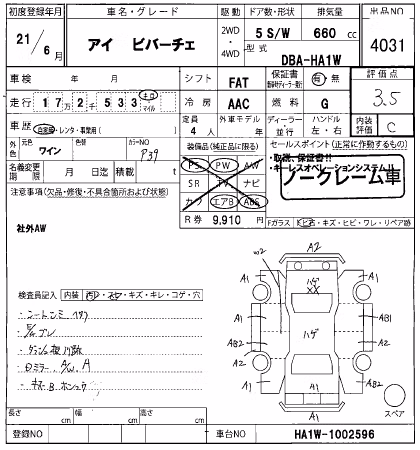 初度登録年月 車名・グレード 駆動 ドア数・形状 排気量 出品NO
21/6月 アイ ビバーチェ 2WD・4WD 5 S/W 660 cc 4031
型式 DBA-HA1W
車検 年 月 シフト FAT 保証書 有・無 評価点
走行 17万2千533 キロ マイル 冷房 AAC 燃料 G 3.5
車歴 自家用・レンタ・事業用( ) 定員 4人 外車モデル 年 ディーラー・並行 ハンドル 左・右 内装評価 C
外色 元色 ワイン 色替 カラーNO P39
装備品(純正品に限る) セールスポイント(正常に作動するもの)
名義変更期限 月 日迄 積載 t
PS PW AW
SR TV ナビ
カワ エアB ABS
・取説、保証書!!
・キーレスオペレーションシステム!!
ノークレーム車
R券 9,910 円
Fガラス キズ・ヒビ・ワレ・リペア跡
注意事項(欠品・修復・不具合箇所および状態)
社外AW
検査員記入 内装 汚レ・スレ・キズ・キレ・コゲ・穴
A2
A1
W2
ハゲ
XX
A1
A1
AB1
AB2
ハゲ
A2
A2
A1
AB2
A1
A1
スペア
長さ cm 幅 cm 高さ cm
登録NO 車台NO HA1W-1002596